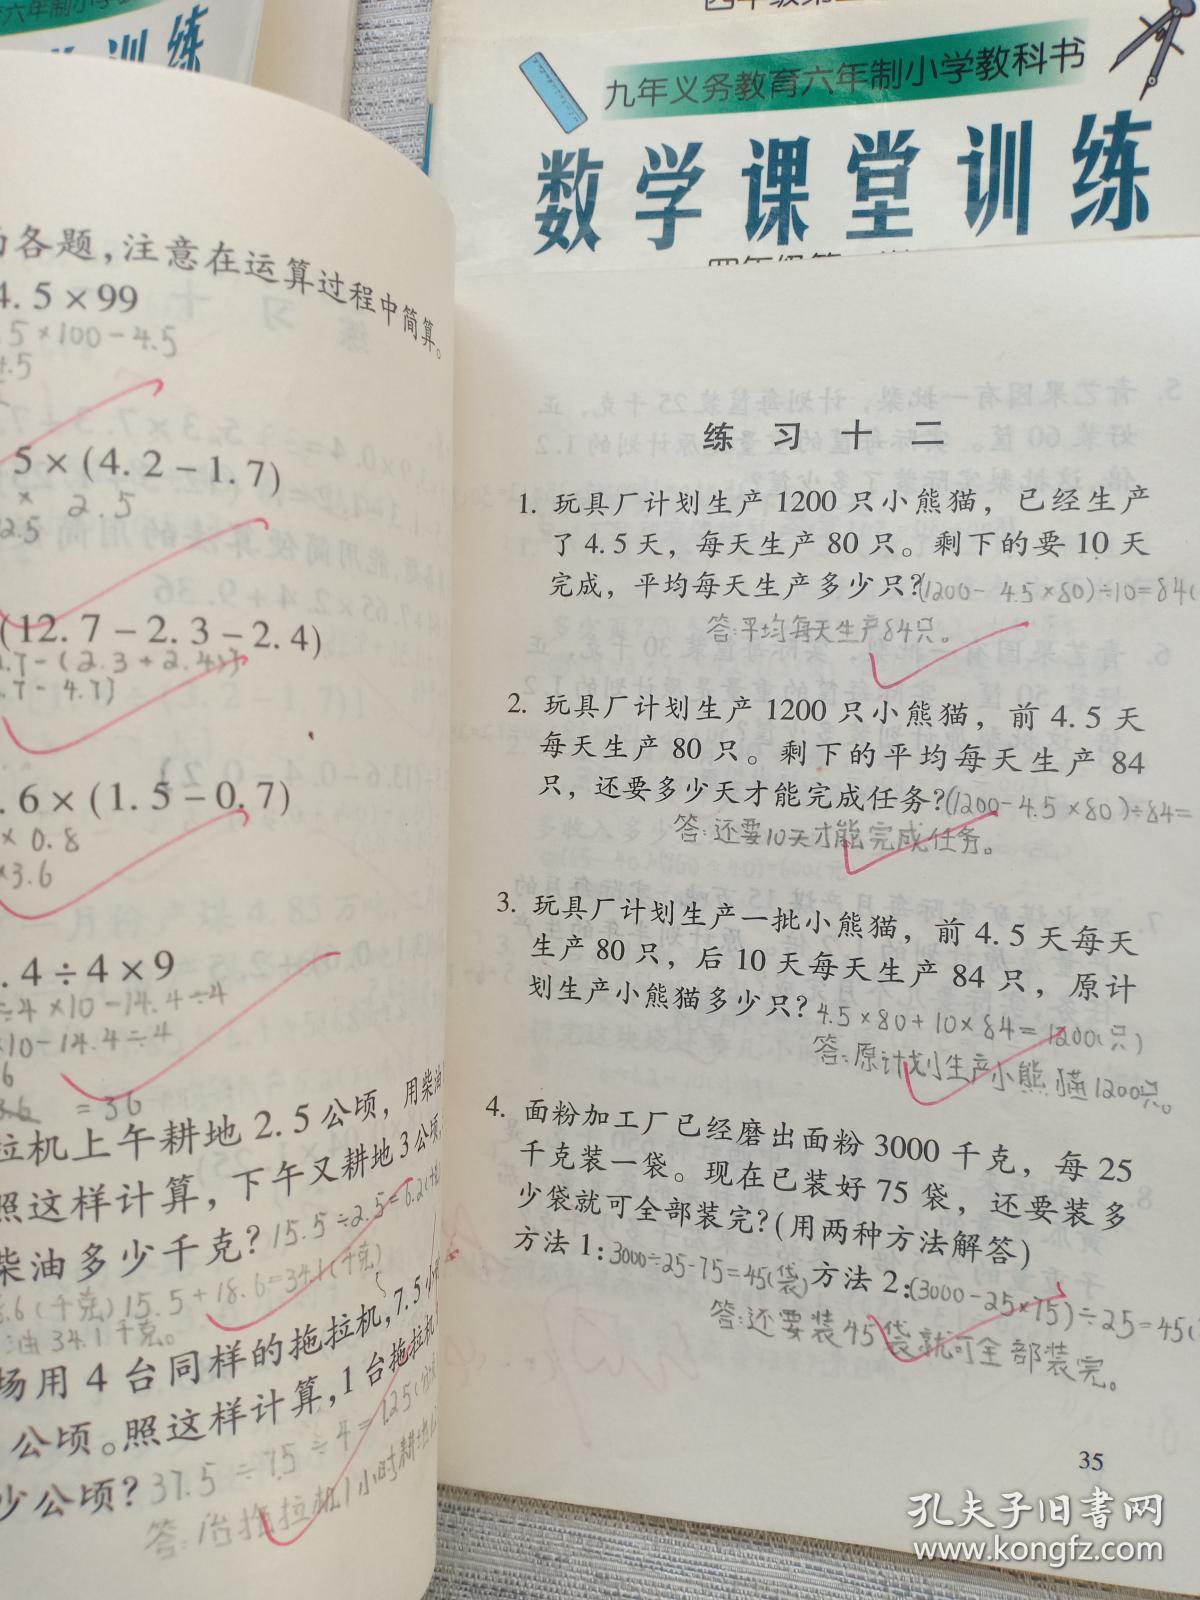 六年制小学
训练
九年义务教育六年制小学教科书
数学课堂训练
各题，注意在运算过程中简算。
4.5×99
.5×100-4.5
4.5
5×(4.2-1.7)
× 2.5
2.5
(12.7-2.3-2.4)
.7-(2.3+2.4)]
.7-4.7]
.6×(1.5-0.7)
×0.8
×3.6
.4÷4×9
÷4×10-14.4÷4
×10-14.4÷4
6
3.6 =36
拉机上午耕地2.5公顷，用柴油
照这样计算，下午又耕地3公顷，
柴油多少千克？15.5÷2.5=6.2(千克
8.6(千克)15.5+18.6=34.1(千克)
油34.1千克。
场用4台同样的拖拉机，7.5小
公顷。照这样计算，1台拖拉机
少公顷？37.5÷7.5÷4=1.25(公顷
拖拉机1小时耕地
练习十二
1. 玩具厂计划生产1200只小熊猫，已经生产
了4.5天，每天生产80只。剩下的要10天
完成，平均每天生产多少只？(1200-4.5×80)÷10=84(
答:平均每天生产84只。
2. 玩具厂计划生产1200只小熊猫，前4.5天
每天生产80只。剩下的平均每天生产84
只，还要多少天才能完成任务？(1200-4.5×80)÷84=
答:还要10天才能完成任务。
3. 玩具厂计划生产一批小熊猫，前4.5天每天
生产80只，后10天每天生产84只，原计
划生产小熊猫多少只？4.5×80+10×84=1200(只)
答:原计划生产小熊猫1200只。
4. 面粉加工厂已经磨出面粉3000千克，每25
千克装一袋。现在已装好75袋，还要装多
少袋就可全部装完？(用两种方法解答)
方法1:3000÷25-75=45(袋)方法2:(3000-25×75)÷25=45(
答:还要装45袋就可全部装完。
35
孔夫子旧书网
www.kongfz.com